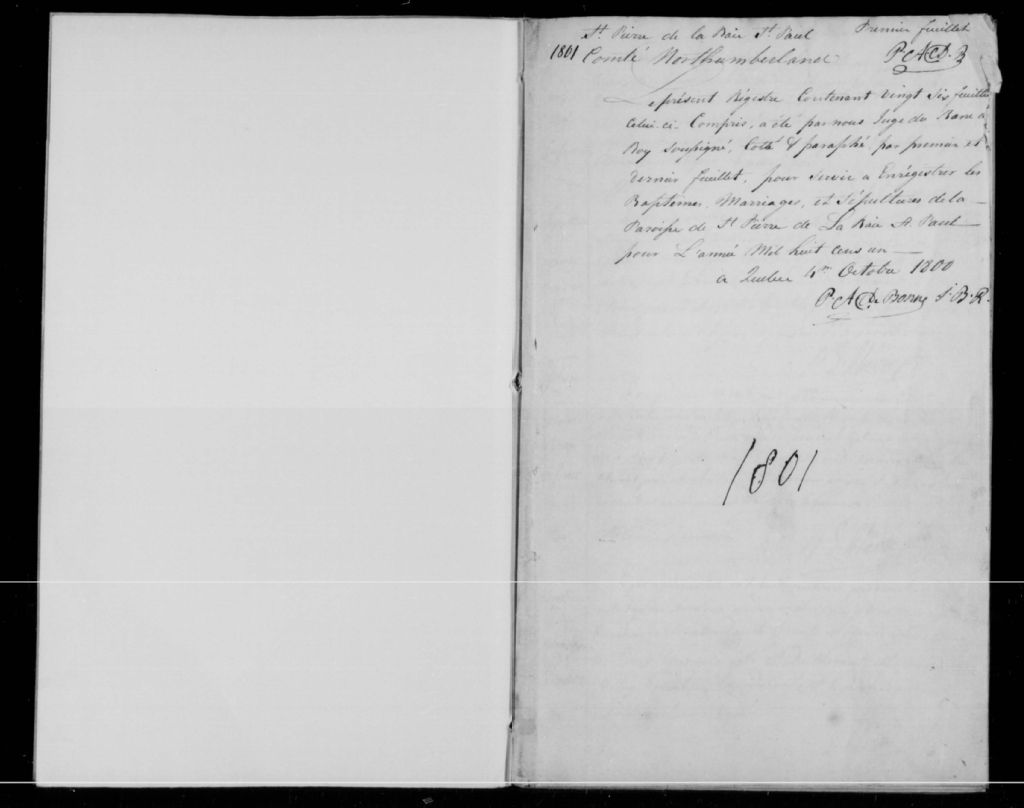 St. Pierre de la Baie St Paul Premier feuillet
1801 Comté Northumberland PACD. B
Le présent Régistre Contenant vingt Six feuillets
Celui-ci Compris, a été par nous Juge du Banc du
Roy Soussigné, Coté & paraphé par premier et
dernier feuillet, pour Servir a Enrégistrer les
Baptemes, Marriages, et Sépultures de la
Paroisse de St Pierre de La Baie St. Paul
pour L'année Mil huit cens un
a Quebec 4me Octobre 1800
P. A. De Bonne J. B. R.
1801